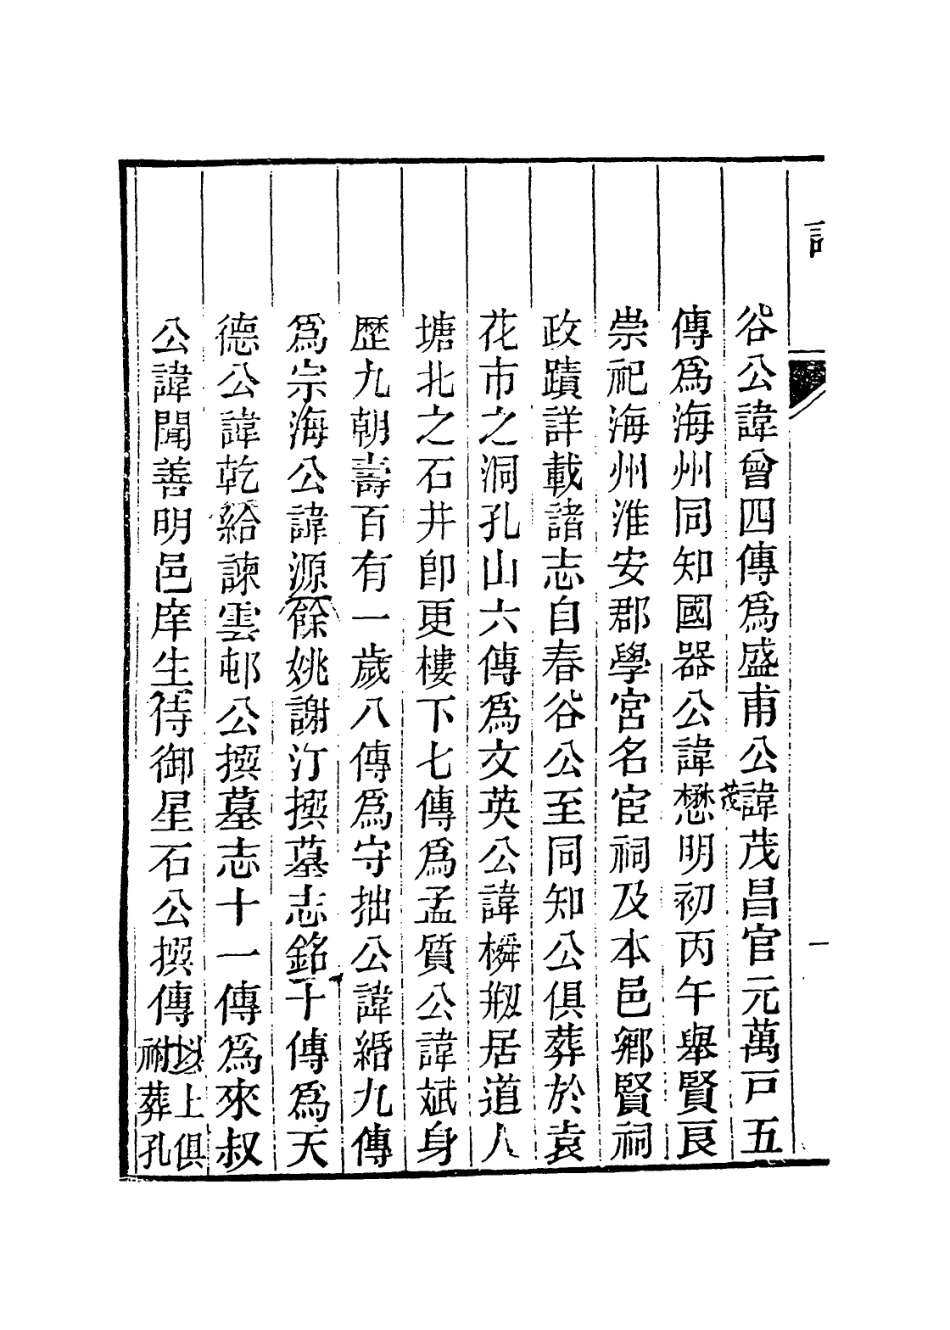 谷公諱曾四傳爲盛甫公諱茂昌官元萬戸五
傳爲海州同知國器公諱懋明初丙午舉賢良
茂
崇祀海州淮安郡學宮名宦祠及本邑鄉賢祠
政蹟詳載諸志自春谷公至同知公俱葬於袁
花市之洞孔山六傳爲文英公諱橓剏居道人
塘北之石井卽更樓下七傳爲孟質公諱斌身
歷九朝壽百有一歲八傳爲守拙公諱緍九傳
爲宗海公諱源餘姚謝汀撰墓志銘十傳爲天
德公諱乾給諫雲邨公撰墓志十一傳爲來叔
公諱聞善明邑庠生侍御星石公撰傳
以上俱
祔葬孔